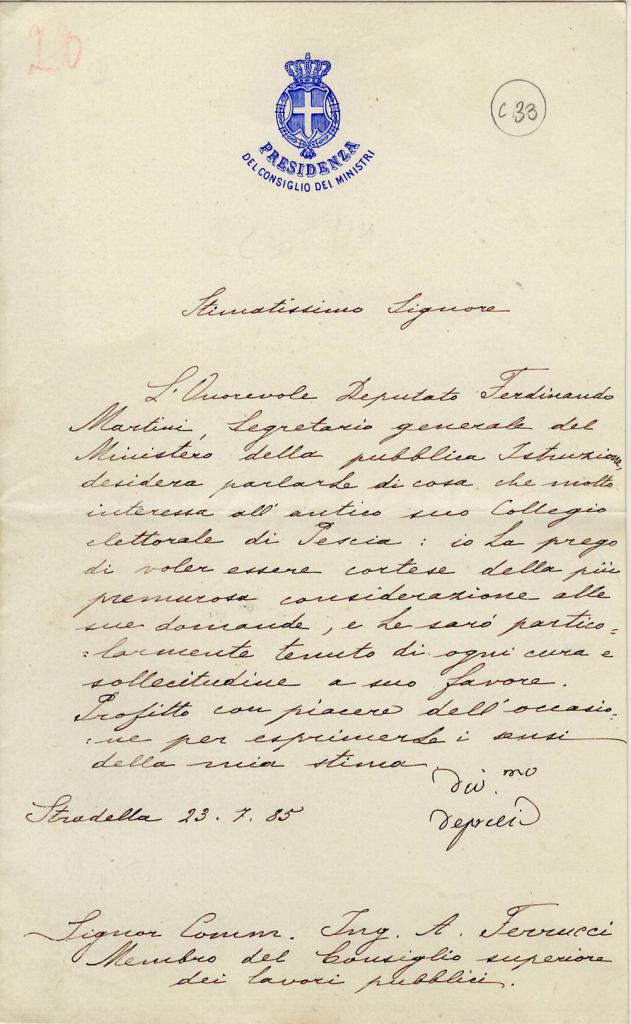 20
C 33
PRESIDENZA
DEL CONSIGLIO DEI MINISTRI
Stimatissimo Signore
L'Onorevole Deputato Ferdinando
Martini, Segretario generale del
Ministero della pubblica Istruzione,
desidera parlarLe di cosa che molto
interessa all'antico suo Collegio
elettorale di Pescia: io La prego
di voler essere cortese della più
premurosa considerazione alle
sue domande, e Le sarò partico-
=larmente tenuto di ogni cura e
sollecitudine a suo favore.
Profitto con piacere dell'occasio-
=ne per esprimerLe i sensi
della mia stima
Div.mo
Depretis
Stradella 23.7.85
Signor Comm. Ing. A. Ferrucci
Membro del Consiglio superiore
dei lavori pubblici.